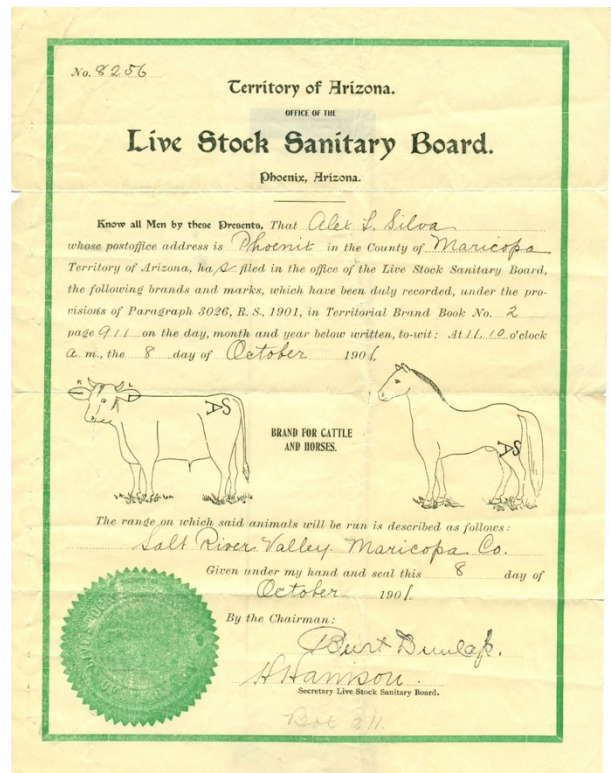 No. 8256
Territory of Arizona.
OFFICE OF THE
Live Stock Sanitary Board.
Phoenix, Arizona.
Know all Men by these Presents, That Alex L. Silva
whose postoffice address is Phoenix in the County of Maricopa
Territory of Arizona, has filed in the office of the Live Stock Sanitary Board,
the following brands and marks, which have been duly recorded, under the pro-
visions of Paragraph 3026, R. S., 1901, in Territorial Brand Book No. 2
page 911 on the day, month and year below written, to-wit: At 11.10 o'clock
a. m., the 8 day of October 1901.
AS
BRAND FOR CATTLE
AND HORSES.
AS
The range on which said animals will be run is described as follows:
Salt River Valley Maricopa Co.
Given under my hand and seal this 8 day of
October 1901.
By the Chairman:
Burt Dunlap.
H Harrison.
Secretary Live Stock Sanitary Board.
Box 211.